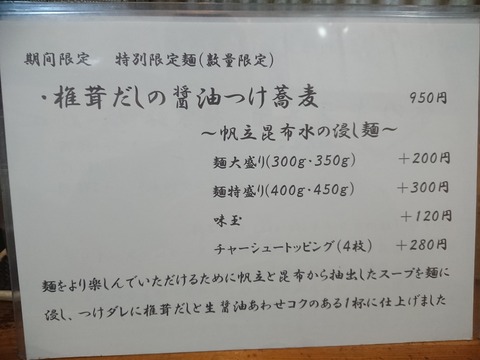 期間限定 特別限定麺(数量限定)
・椎茸だしの醤油つけ蕎麦 950円
～帆立昆布水の浸し麺～
麺大盛り(300g・350g) +200円
麺特盛り(400g・450g) +300円
味玉 +120円
チャーシュートッピング(4枚) +280円
麺をより楽しんでいただけるために帆立と昆布から抽出したスープを麺に
浸し、つけダレに椎茸だしと生醤油あわせコクのある1杯に仕上げました